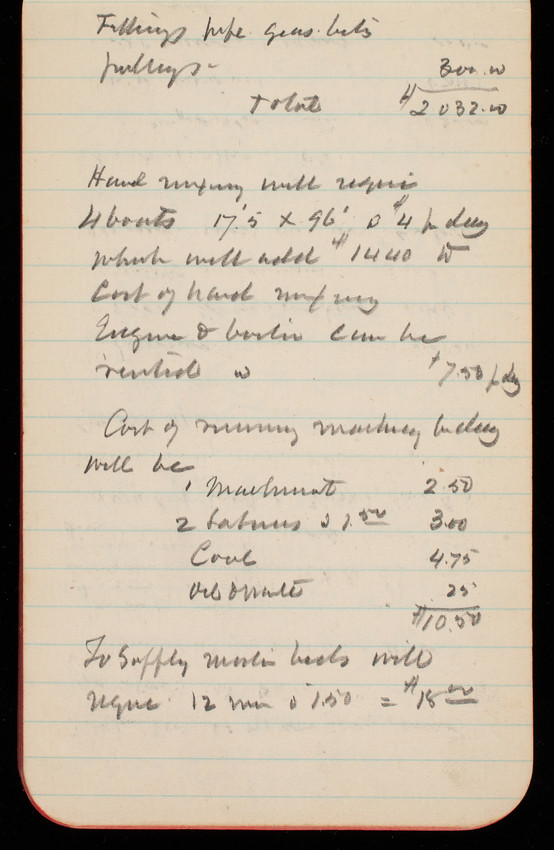 Fittings pipe gears belts
pulleys - 300.00
Total $2032.00
Hand mixing will require
4 boats 17'.5 x 96' @ $4 p day
which will add $1440 to
Cost of hand mixing
Engine & boiler can be
rented @ $7.50 p day
Cost of running machinery p day
will be
1 Machinist 2.50
2 Laborers @ 1.50 3.00
Coal 4.75
Oil & Waste 25
$10.50
To Supply mortar beds will
require 12 men @ 1.50 = $18.00